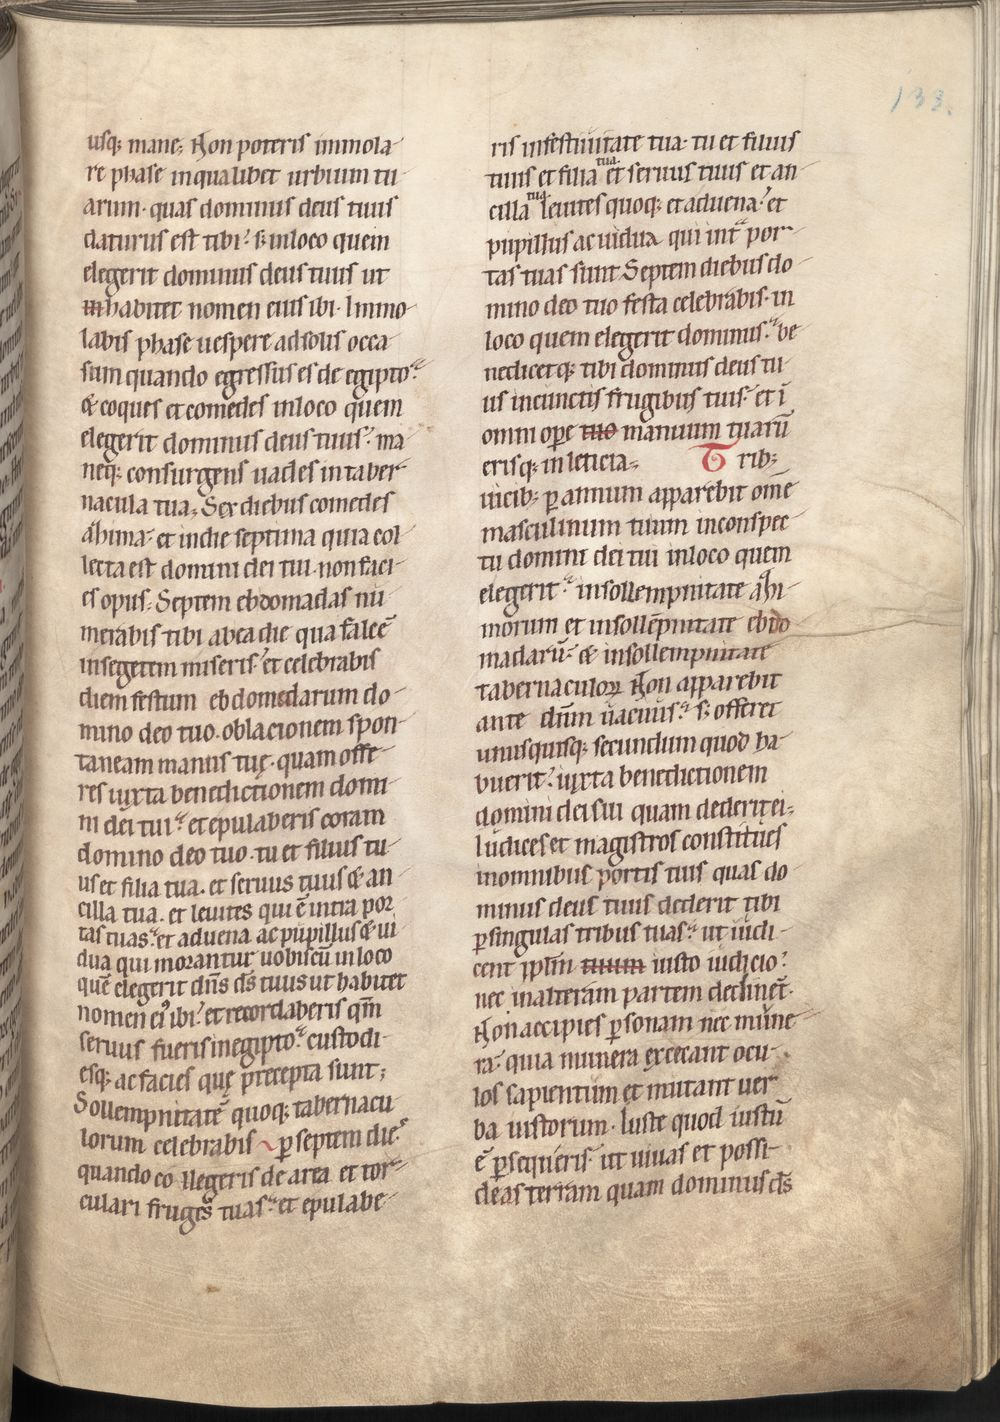 133.
usq; mane; Non poteris immola
re phase inqualibet urbium tu
arum· quas dominus deus tuus
daturus est tibi: s; inloco quem
elegerit dominus deus tuus ut
inhabitet nomen eius ibi· Immo
labis phase uespere adsolis occa
sum quando egressus es de egipto:
& coques et comedes inloco quem
elegerit dominus deus tuus: ma
neq; consurgens uades in taber
nacula tua; Sex diebus comedes
ażima· et indie septima quia col
lecta est domini dei tui· non faci
es opus; Septem ebdomadas nu
merabis tibi abea die qua falcē
insegetem miseris: et celebrabis
diem festum ebdomedarum do
mino deo tuo· oblacionem spon
taneam manus tuę· quam offe
res iuxta benedictionem domi
ni dei tui: et epulaberis coram
domino deo tuo· tu et filius tu
us et filia tua· et seruus tuus & an
cilla tua· et leuites qui ē intra por
tas tuas: et aduena ac pupillus & ui
dua qui morantur uobiscū in loco
quē elegerit dn̄s ds̄ tuus ut habitet
nomen ei᾽ ibi: et recordaberis qm̄
seruus fueris inegipto: custodi
esq; ac facies quę precepta sunt;
Sollempnitatē quoq; tabernacu
lorum celebrabis ꝑ septem dies
quando collegeris de area et tor
culari fruges tuas: et epulabe
ris infestiuitate tua· tu et filius
tuus et filia tua et seruus tuus et an
cilla tua leuites quoq; et aduena: et
pupillus ac uidua qui intᵃ por
tas tuas sunt Septem diebus do
mino deo tuo festa celebrabis· in
loco quem elegerit dominus: be
nedicetq; tibi dominus deus tu
us incunctis frugibus tuis: et ī
omni oꝑe tuo manuum tuarū
erisq; in leticia; Trib;
uicib; ꝑ annum apparebit ome
masculinum tuum inconspec
tu domini dei tui inloco quem
elegerit: insollempnitate ażi
morum et insollēpnitate ebdo
madarū: & insollempnitate
tabernaculoꝝ Non apparebit
ante dn̄m uacuus: s; offeret
unusquisq; secundum quod ha
buerit: iuxta benedictionem
domini dei sui quam dederit ei;
Iudices et magistros constitues
inomnibus portis tuis quas do
minus deus tuus dederit tibi
ꝑ singulas tribus tuas: ut iudi
cent ipłm tuum iusto iudicio:
nec inalteram partem declinet·
Non accipies ꝑsonam nec mune
ra· quia munera excecant ocu
los sapientum et mutant uer
ba iustorum· Iuste quod iustū
ē ꝑsequeris· ut uiuas et possi
deas terram quam dominus ds̄